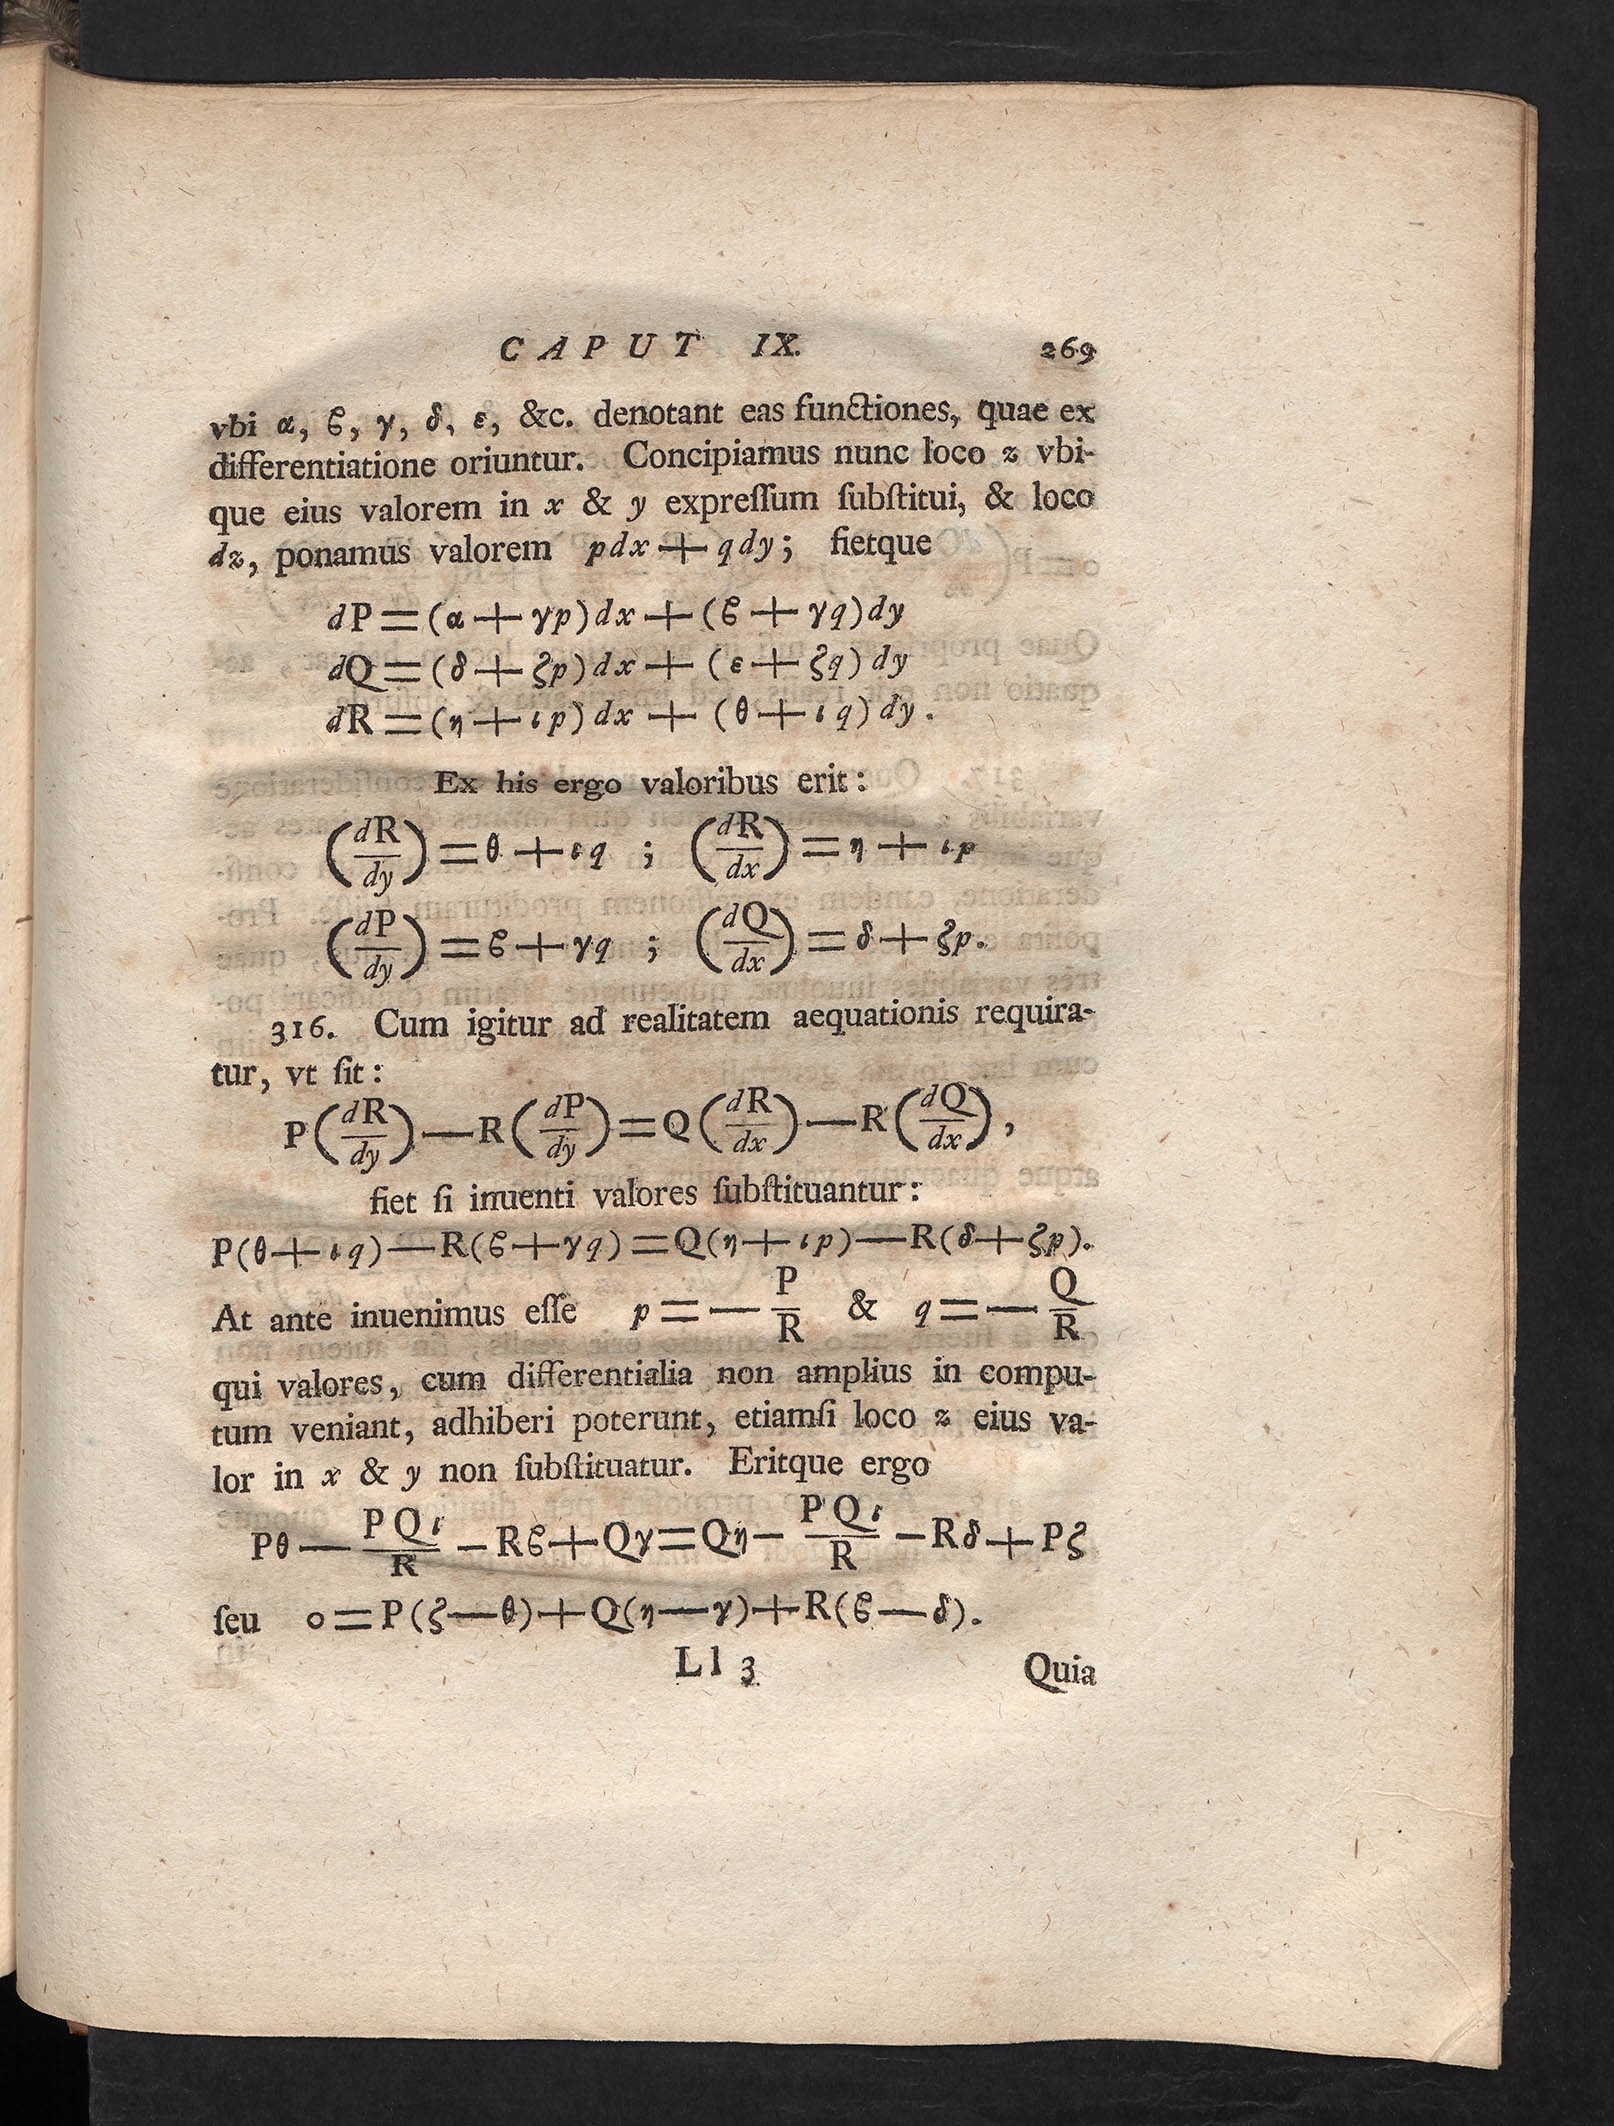 CAPUT IX. 269
vbi α, ϐ, γ, δ, ε, &c. denotant eas functiones, quae ex
differentiatione oriuntur. Concipiamus nunc loco z vbi-
que eius valorem in x & y expreſſum ſubſtitui, & loco
dz, ponamus valorem pdx + qdy; fietque
dP = (α + γp)dx + (ϐ + γq)dy
dQ = (δ + ζp)dx + (ε + ζq)dy
dR = (η + ιp)dx + (θ + ιq)dy.
Ex his ergo valoribus erit:
(dR/dy) = θ + ιq ; (dR/dx) = η + ιp
(dP/dy) = ϐ + γq ; (dQ/dx) = δ + ζp.
316. Cum igitur ad realitatem aequationis requira-
tur, vt ſit:
P(dR/dy) — R(dP/dy) = Q(dR/dx) — R(dQ/dx),
fiet ſi inuenti valores ſubſtituantur:
P(θ + ιq) — R(ϐ + γq) = Q(η + ιp) — R(δ + ζp).
At ante inuenimus eſſe p = — P/R & q = — Q/R
qui valores, cum differentialia non amplius in compu-
tum veniant, adhiberi poterunt, etiamſi loco z eius va-
lor in x & y non ſubſtituatur. Eritque ergo
Pθ — PQι/R — Rϐ + Qγ = Qη — PQι/R — Rδ + Pζ
ſeu 0 = P(ζ — θ) + Q(η — γ) + R(ϐ — δ).
Ll 3 Quia